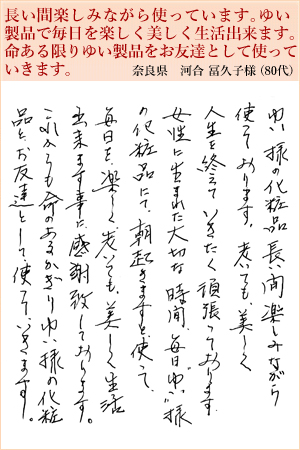 長い間楽しみながら使っています。ゆい
製品で毎日を楽しく美しく生活出来ます。
命ある限りゆい製品をお友達として使って
いきます。
奈良県　河合 冨久子様（80代）
ゆい様の化粧品長い間楽しみながら
使っております。老いても、美しく
人生を終えていきたく頑張っております。
女性に生まれた大切な時間、毎日“ゆい”様
の化粧品にて、朝起きますと使って、
毎日を、楽しく老いても、美しく生活
出来ます事に感謝致しております。
これからも命のあるかぎりゆい様の化粧
品を、お友達として使っていきます。